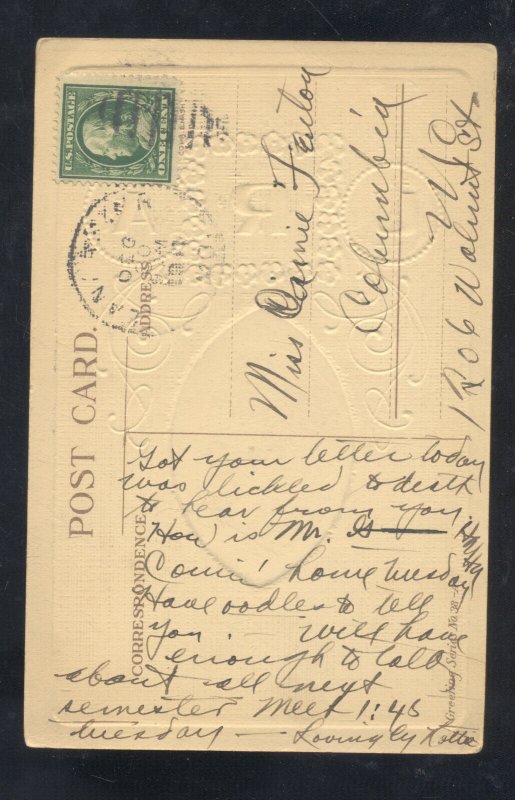 U.S. POSTAGE
ONE CENT
DEC
30
POST CARD.
ADDRESS
CORRESPONDENCE
Miss Fenton
Columbia
Mo
1206 Walnut St
Got your letter today
was tickled to death
to hear from you.
How is Mr. G
Comin' home Tuesday
Have oodles to tell
you. – will have
enough to talk
about all next
semester Meet 1:45
Tuesday — Lovingly
Greeting Series No. 38